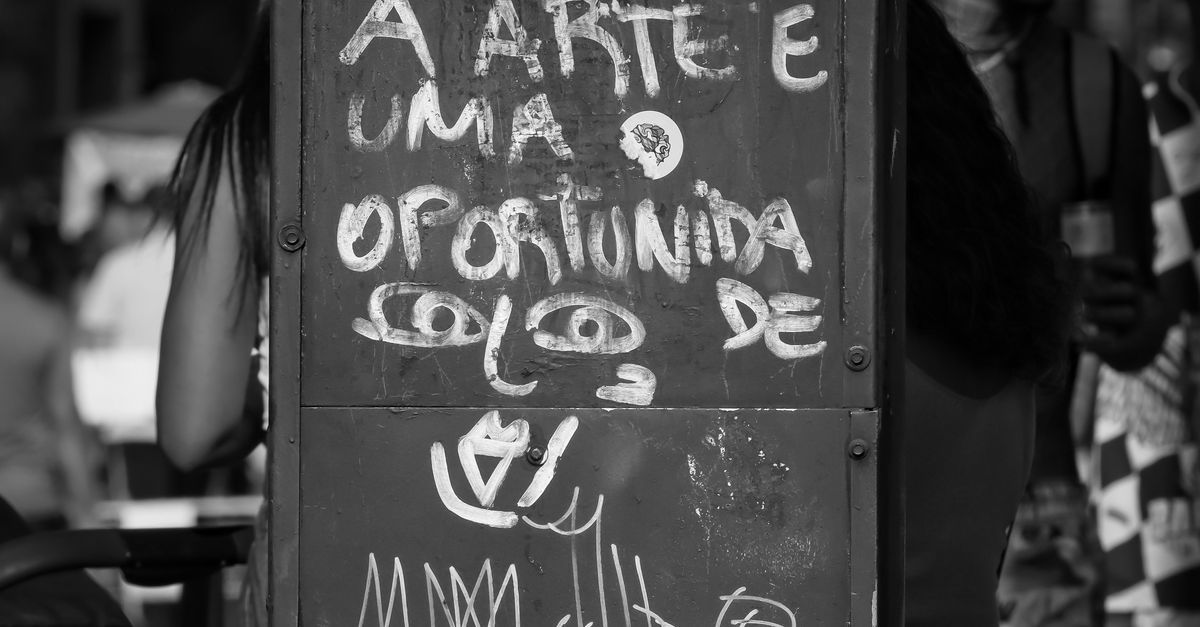 A ARTE E
UMA
OPORTUNIDA
DE